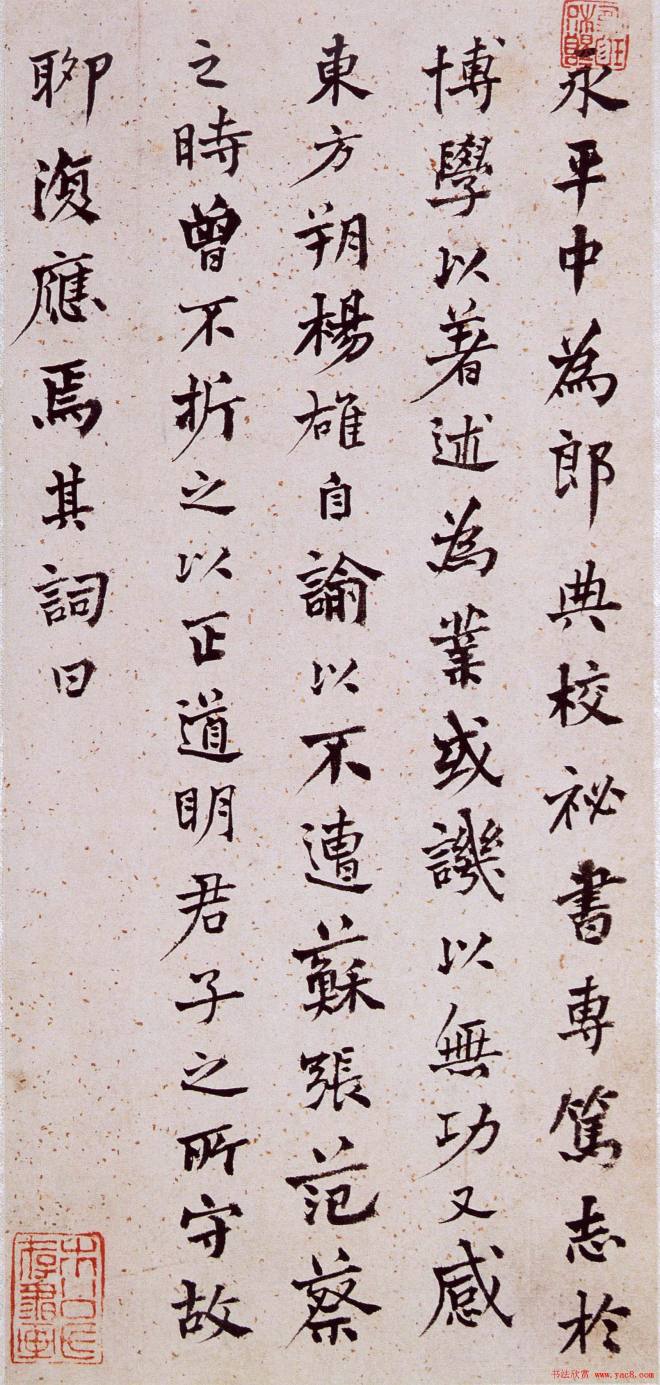 永平中為郎典校祕書專篤志於
博學以著述為業或譏以無功又感
東方朔楊雄自諭以不遭蘇張范蔡
之時曾不折之以正道明君子之所守故
聊復應焉其詞曰
书法欣赏 www.yac8.com